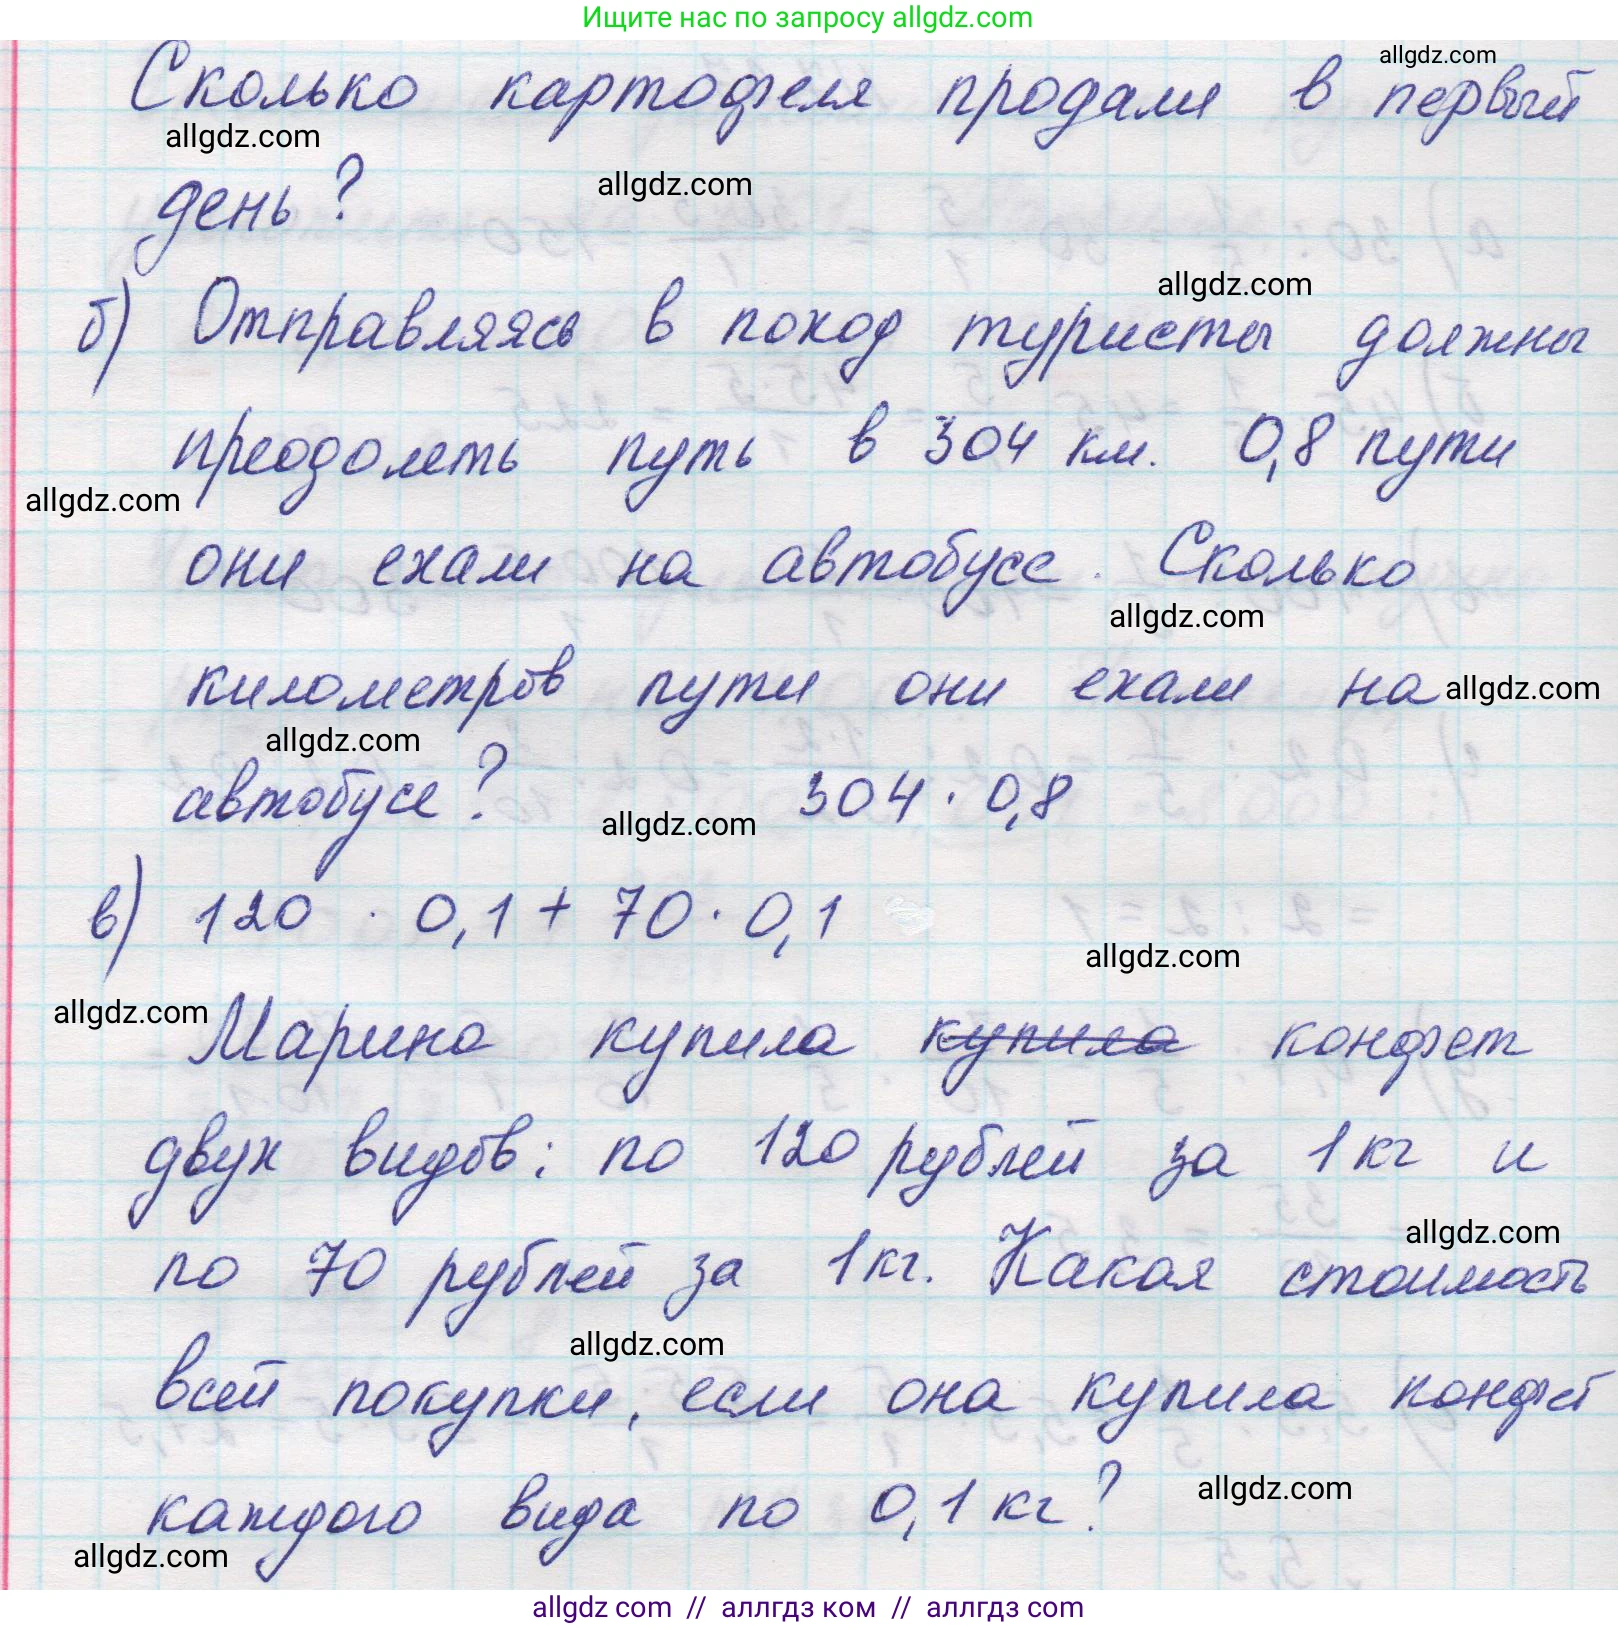 Ищите нас по запросу allgdz.com
allgdz.com
Сколько картофеля продали в первый
allgdz.com
день?
allgdz.com
allgdz.com
б) Отправляясь в поход туристы должны
преодолеть путь в 304 км. 0,8 пути
allgdz.com
они ехали на автобусе. Сколько
allgdz.com
километров пути они ехали на
allgdz.com
allgdz.com
автобусе? 304 · 0,8
allgdz.com
в) 120 · 0,1 + 70 · 0,1
allgdz.com
allgdz.com
Марина купила купила конфет
двух видов: по 120 рублей за 1 кг и
allgdz.com
по 70 рублей за 1 кг. Какая стоимость
allgdz.com
всей покупки, если она купила конфет
allgdz.com
каждого вида по 0,1 кг?
allgdz.com
allgdz com // аллгдз ком // аллгдз com